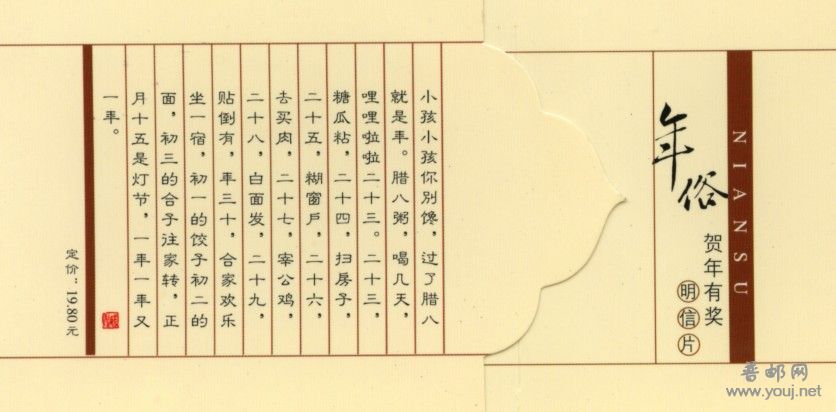 NIANSU
年俗
贺年有奖
明信片
小孩小孩你别馋，过了腊八
就是年。腊八粥，喝几天，
哩哩啦啦二十三。二十三，
糖瓜粘，二十四，扫房子，
二十五，糊窗户，二十六，
去买肉，二十七，宰公鸡，
二十八，白面发，二十九，
贴倒有，年三十，合家欢乐
坐一宿，初一的饺子初二的
面，初三的合子往家转，正
月十五是灯节，一年一年又
一年。
定价：19.80元
邮网
www.youj.net